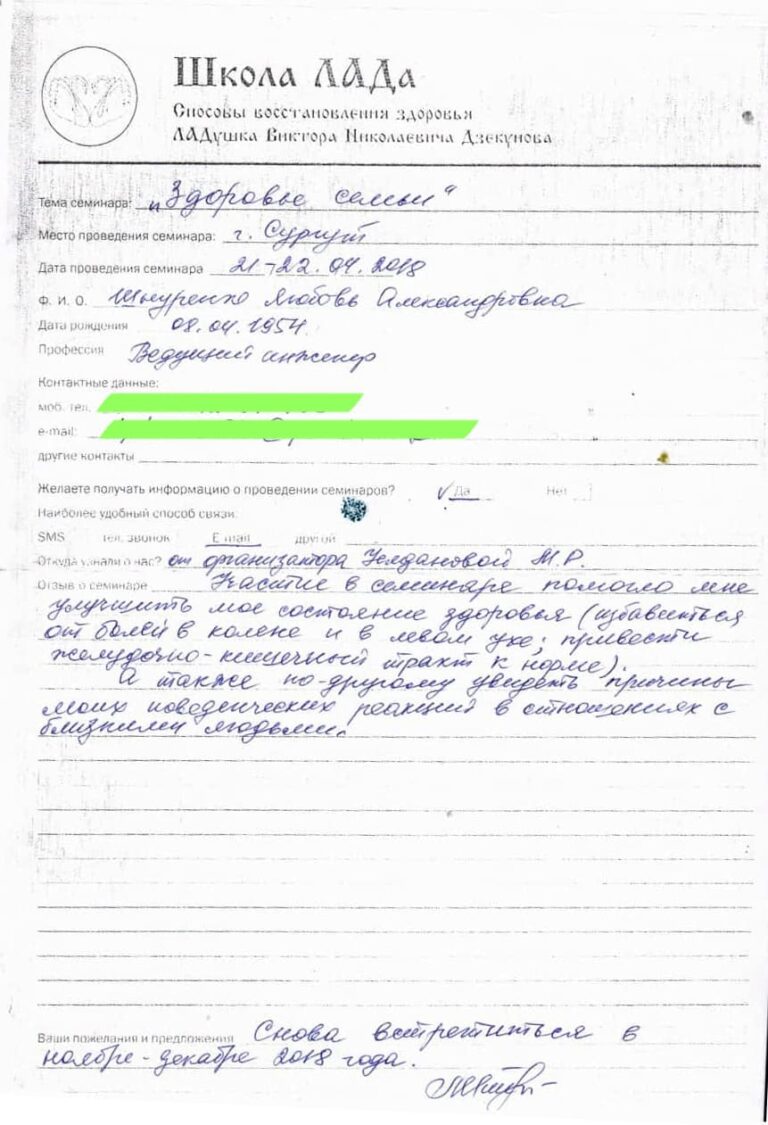 Школа ЛАДа
Способы восстановления здоровья
ЛАДушка Виктора Николаевича Дзекунова
Тема семинара: „Здоровье семьи“
Место проведения семинара: г. Сургут
Дата проведения семинара 21-22.04.2018
Ф. И. О. Шнуренко Любовь Александровна
Дата рождения 08.04.1954
Профессия Ведущий инженер
Контактные данные:
моб. тел.
e-mail:
другие контакты
Желаете получать информацию о проведении семинаров? Да Нет
Наиболее удобный способ связи:
SMS тел. звонок E-mail другой
Откуда узнали о нас? от организатора М.Р.
Отзыв о семинаре Участие в семинаре помогло мне
улучшить мое состояние здоровья (избавиться
от болей в колене и в левом ухе; привести
желудочно-кишечный тракт к норме).
А также по-другому увидеть причины
моих поведенческих реакций в отношениях с
близкими людьми.
Ваши пожелания и предложения Снова встретиться в
ноябре-декабре 2018 года.